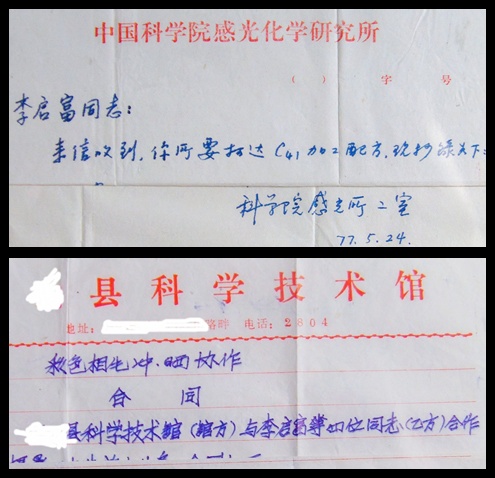 中国科学院感光化学研究所
（ ） 字 号
李启富同志：
来信收到，你所要柯达C41加工配方，现抄录如下：
科学院感光所二室
77.5.24.
县科学技术馆
地址： 路畔 电话：2804
彩色相纸冲·晒协作
合 同
县科学技术馆（馆方）与李启富等四位同志（乙方）合作